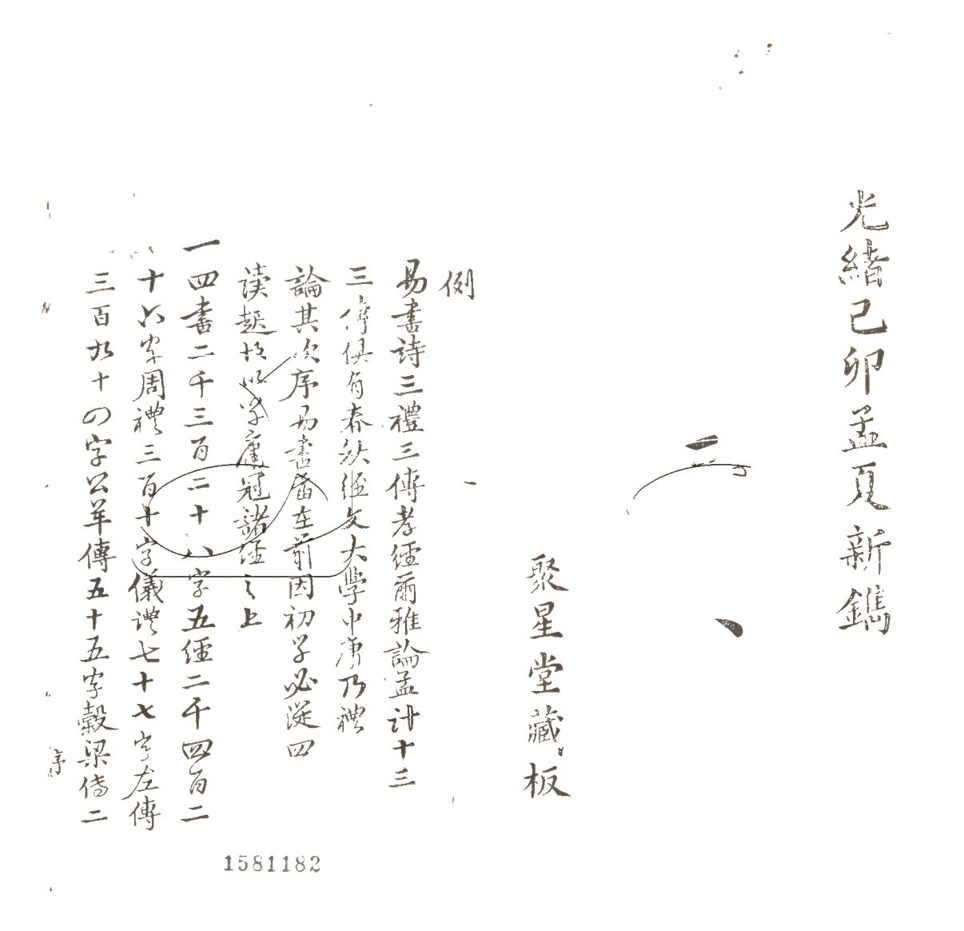 光緒己卯孟夏新鐫
聚星堂藏板
例
易書詩三禮三傳孝經爾雅論孟計十三
三傳俱有春秋經文大學中庸乃禮
論其次序易書當在前因初学必從四
讀起故以学庸冠諸經之上
一四書二千三百二十八字五經二千四百二
十六字周禮三百十字儀禮七十七字左傳
三百九十四字公羊傳五十五字穀梁傳二
序
1581182